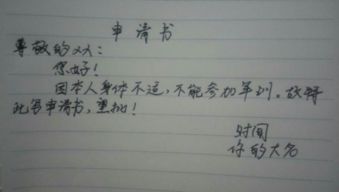 申请书
尊敬的XX:
您好!
因本人身体不适,不能参加军训。故特
此写申请书,望批!
时间
你的大名